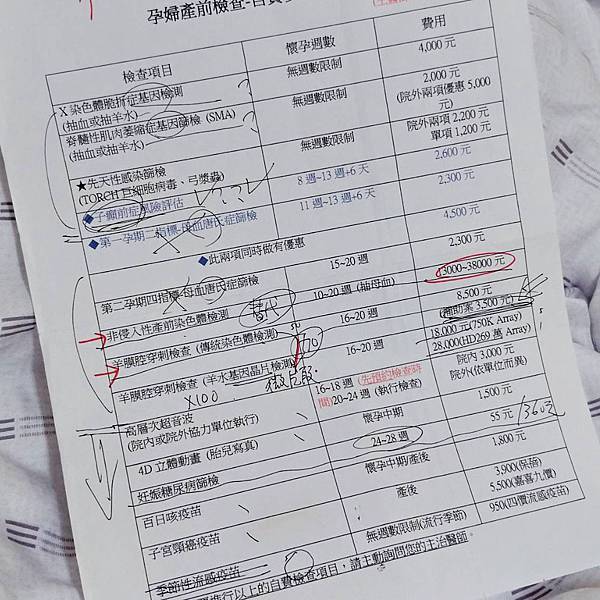 孕婦產前檢查-自費
檢查項目 懷孕週數 費用
X 染色體脆折症基因檢測
(抽血或抽羊水) 無週數限制 4,000 元
脊髓性肌肉萎縮症基因篩檢 (SMA)
(抽血或抽羊水) 無週數限制 2,000 元
(院外兩項優惠 5,000
元)
★先天性感染篩檢
(TORCH 巨細胞病毒、弓漿蟲) 無週數限制 院外兩項 2,200 元
單項 1,200 元
◆子癲前症風險評估 8 週~13 週+6 天 2,600 元
◆第一孕期二指標-母血唐氏症篩檢 11 週~13 週+6 天 2,300 元
◆此兩項同時做有優惠 4,500 元
第二孕期四指標-母血唐氏症篩檢 15~20 週 2,300 元
非侵入性產前染色體檢測 10~20 週 (抽母血) 13000~38000 元
替代
羊膜腔穿刺檢查 (傳統染色體檢測) 16~20 週 8,500 元
(補助案 3,500 元)
羊膜腔穿刺檢查 (羊水基因晶片檢測) 16~20 週 18,000 元(750K Array)
28,000(HD269 萬 Array)
X100
高層次超音波
(院內或院外協力單位執行) 16~18 週 (先預約檢查時
間)20~24 週 (執行檢查) 院內 3,000 元
院外(依單位而異)
4D 立體動畫 (胎兒寫真) 懷孕中期 1,500 元
妊娠糖尿病篩檢 24~28 週 55 元
百日咳疫苗 懷孕中期/產後 1,800 元
子宮頸癌疫苗 產後 3,900(保蓓)
5,500(嘉喜九價)
季節性流感疫苗 無週數限制(流行季節) 950(四價流感疫苗)
進行以上的自費檢查項目，請主動詢問您的主治醫師。